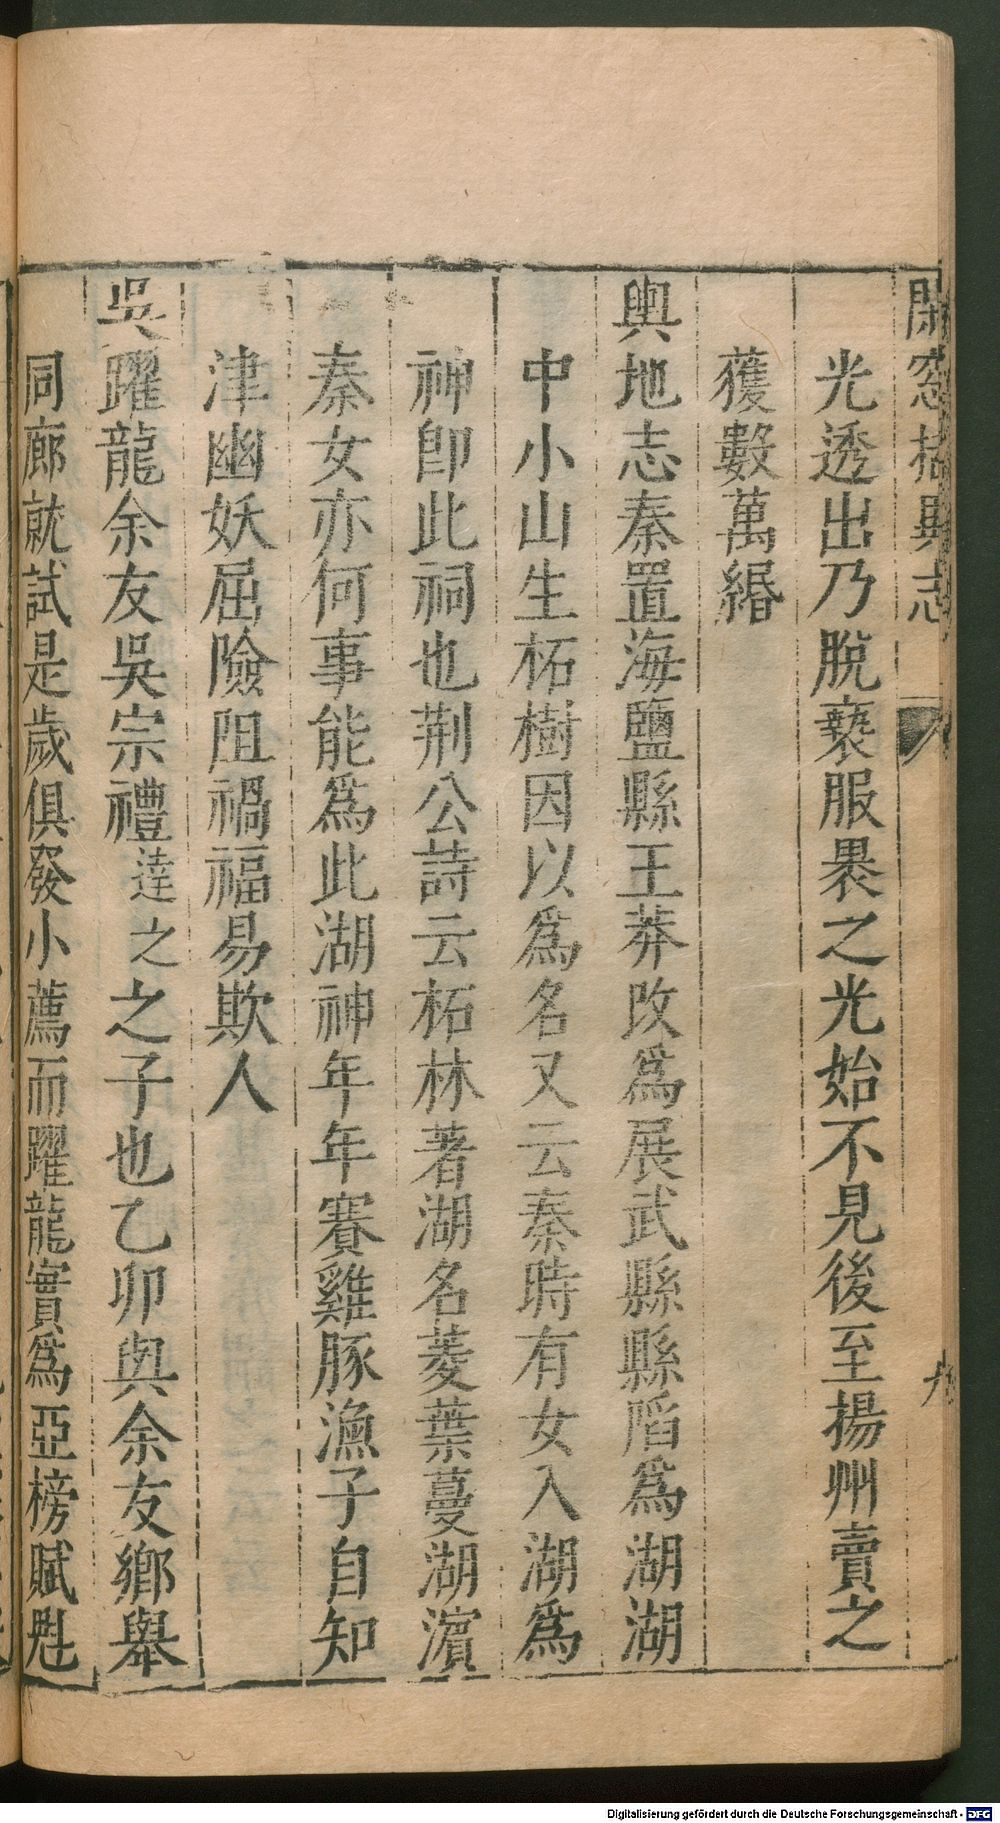 閑窓括異志
九
光透出乃脫褻服褁之光始不見後至揚州賣之
獲數萬緡
輿地志秦置海鹽縣王莽改爲展武縣縣陷爲湖湖
中小山生柘樹因以爲名又云秦時有女入湖爲
神卽此祠也荆公詩云柘林著湖名菱葉蔓湖濵
秦女亦何事能爲此湖神年年賽雞豚漁子自知
津幽妖屈險阻禍福易欺人
吳躍龍余友吳宗禮逹之之子也乙卯與余友鄉舉
同廊就試是歲俱發小薦而躍龍實爲亞榜賦魁
Digitalisierung gefördert durch die Deutsche Forschungsgemeinschaft - DFG